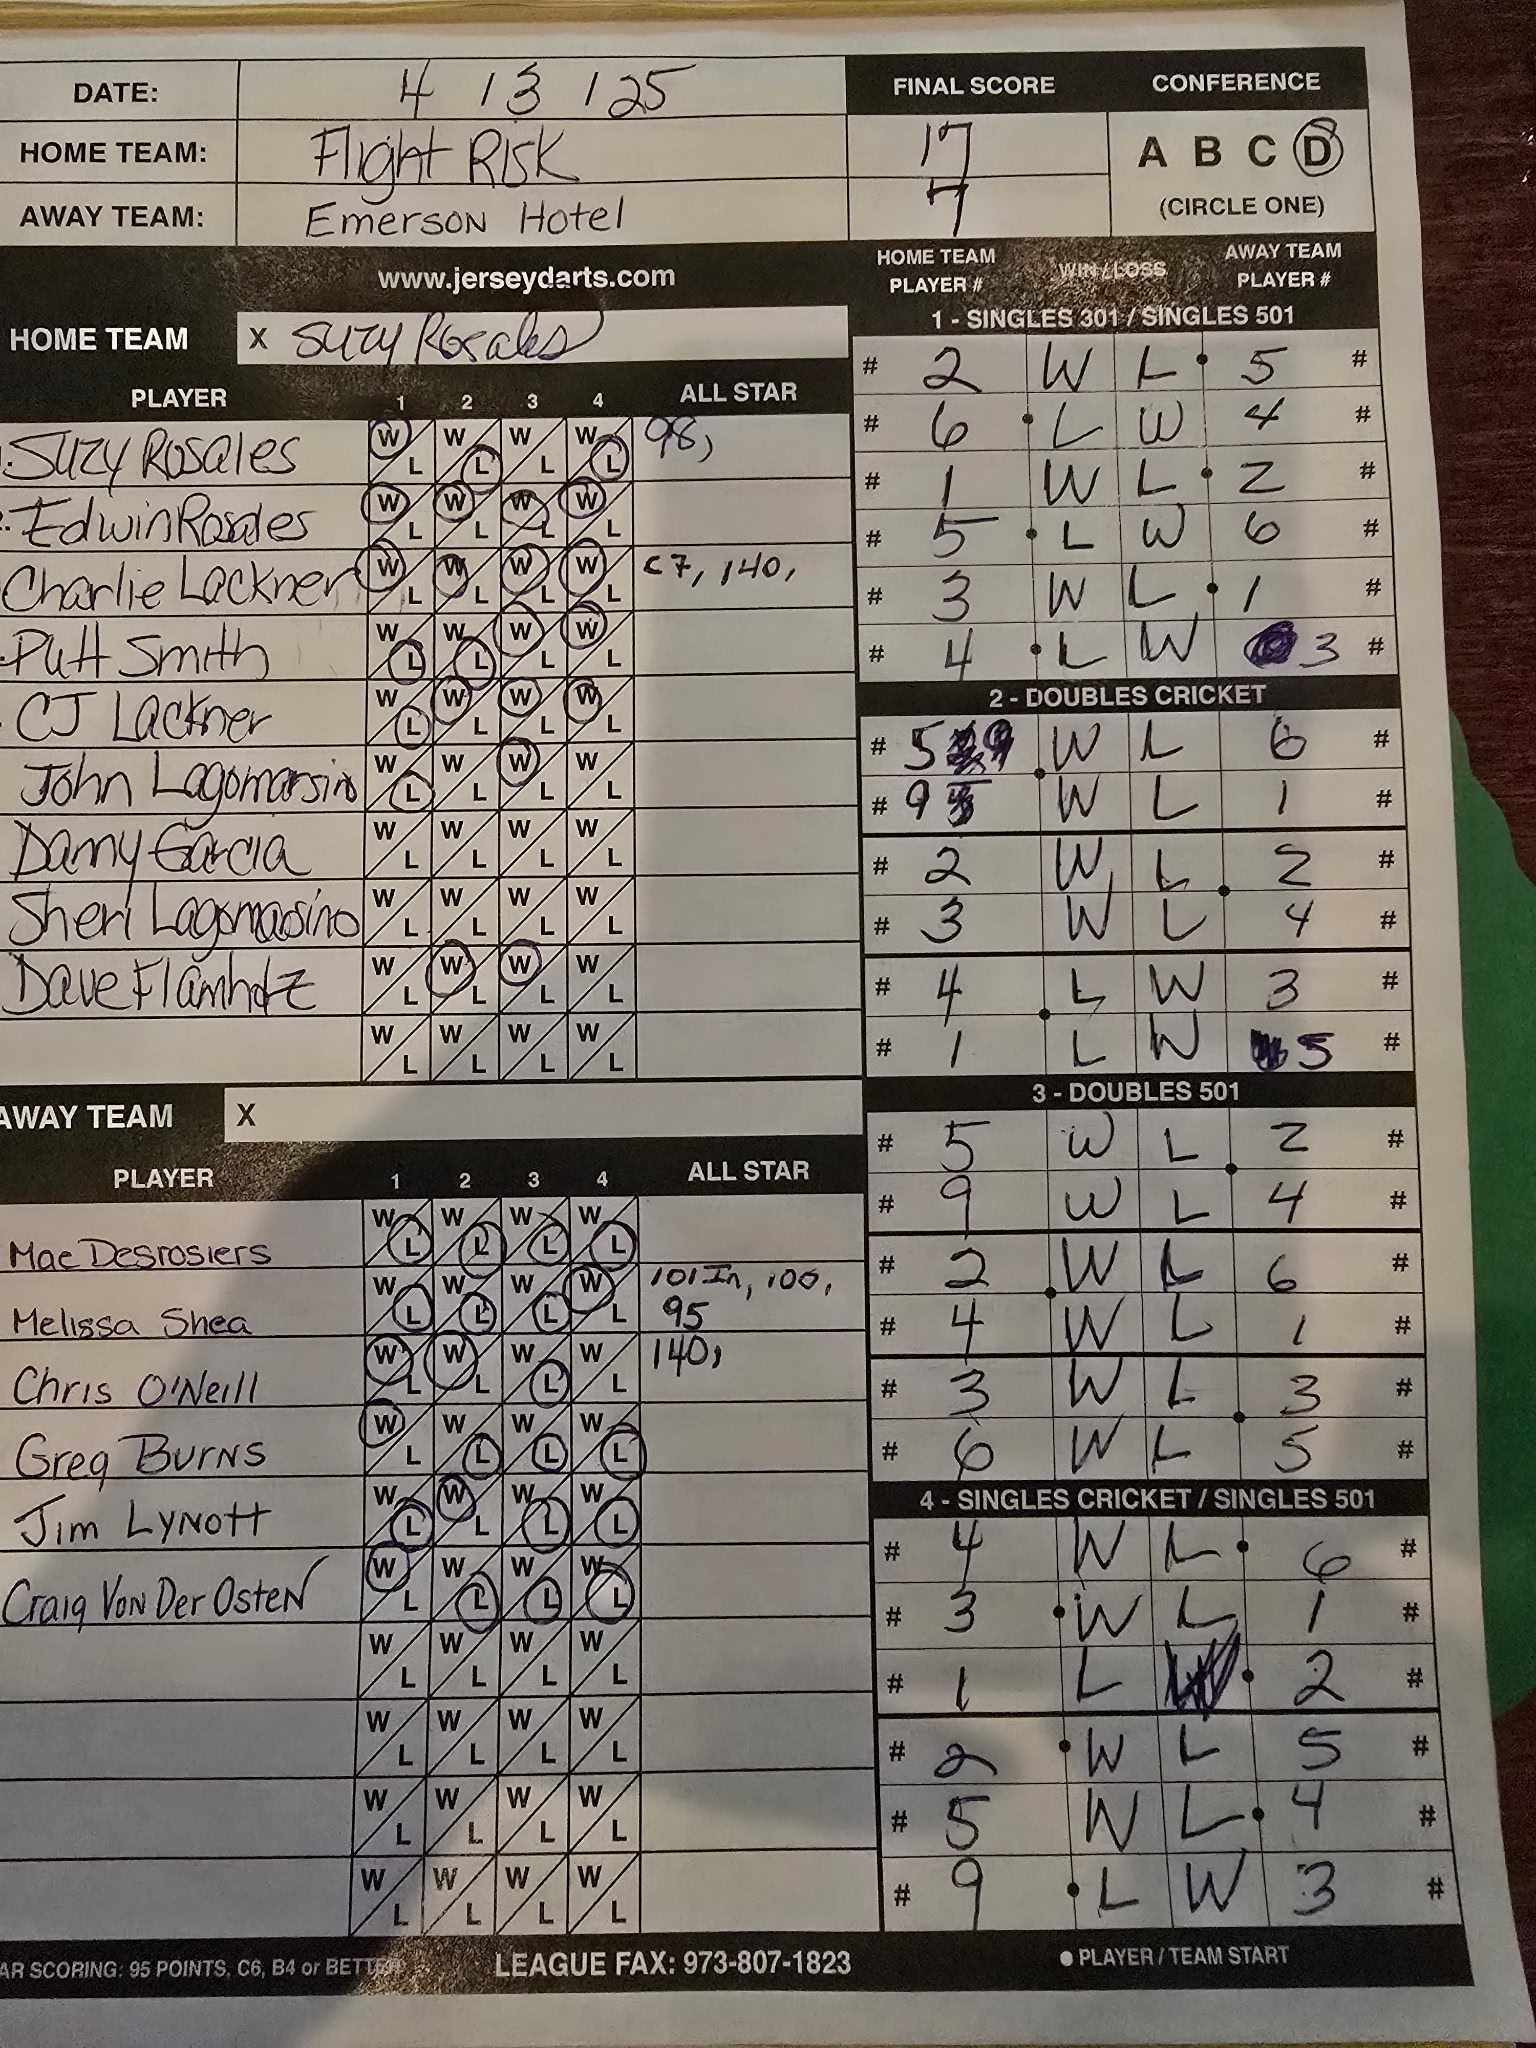 DATE: 4 13 125
FINAL SCORE CONFERENCE
HOME TEAM: Flight Risk 17 A B C D
AWAY TEAM: Emerson Hotel 7 (CIRCLE ONE)
www.jerseydarts.com
HOME TEAM PLAYER # WIN / LOSS AWAY TEAM PLAYER #
HOME TEAM X Suzy Rosales
PLAYER 1 2 3 4 ALL STAR
Suzy Rosales W L W L W L W L 98,
Edwin Rosales W L W L W L W L
Charlie Lackner W L W L W L W L C7, 140,
Putt Smith W L W L W L W L
CJ Lackner W L W L W L W L
John Lagomarsino W L W L W L W L
Danny Garcia W L W L W L W L
Sheri Lagomarsino W L W L W L W L
Dave Flamholz W L W L W L W L
W L W L W L W L
AWAY TEAM X
PLAYER 1 2 3 4 ALL STAR
Mae Desrosiers W L W L W L W L
Melissa Shea W L W L W L W L 101 In, 100,
95
Chris O'Neill W L W L W L W L 140,
Greg Burns W L W L W L W L
Jim Lynott W L W L W L W L
Craig Von Der Osten W L W L W L W L
W L W L W L W L
W L W L W L W L
W L W L W L W L
W L W L W L W L
1 - SINGLES 301 / SINGLES 501
# 2 W L 5 #
# 6 L W 4 #
# 1 W L 2 #
# 5 L W 6 #
# 3 W L 1 #
# 4 L W 3 #
2 - DOUBLES CRICKET
# 5 W L 6 #
# 9 W L 1 #
# 2 W L 2 #
# 3 W L 4 #
# 4 L W 3 #
# 1 L W 5 #
3 - DOUBLES 501
# 5 W L 2 #
# 9 W L 4 #
# 2 W L 6 #
# 4 W L 1 #
# 3 W L 3 #
# 6 W L 5 #
4 - SINGLES CRICKET / SINGLES 501
# 4 W L 6 #
# 3 W L 1 #
# 1 L W 2 #
# 2 W L 5 #
# 5 W L 4 #
# 9 L W 3 #
AR SCORING: 95 POINTS, C6, B4 or BETTER LEAGUE FAX: 973-807-1823 ● PLAYER / TEAM START